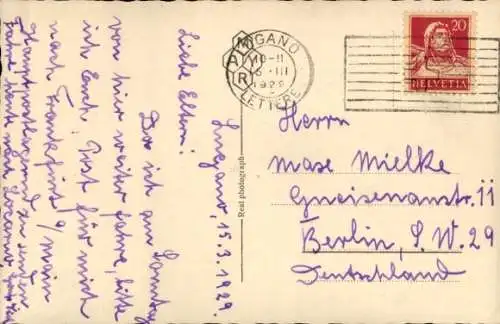 Lugano, 15.3.1929.
Liebe Eltern!
Da ich am Samstag
von hier weiter fahre, bitte
ich Euch Post für mich
nach Frankfurt a/Main
Hauptpostlagernd zu senden
Fahre heute nach Locarno
Real photograph
LUGANO
LETTERE
1929
20
HELVETIA
Herrn
Maxe Mielke
Gneisenaustr. 11
Berlin, S.W. 29
Deutschland